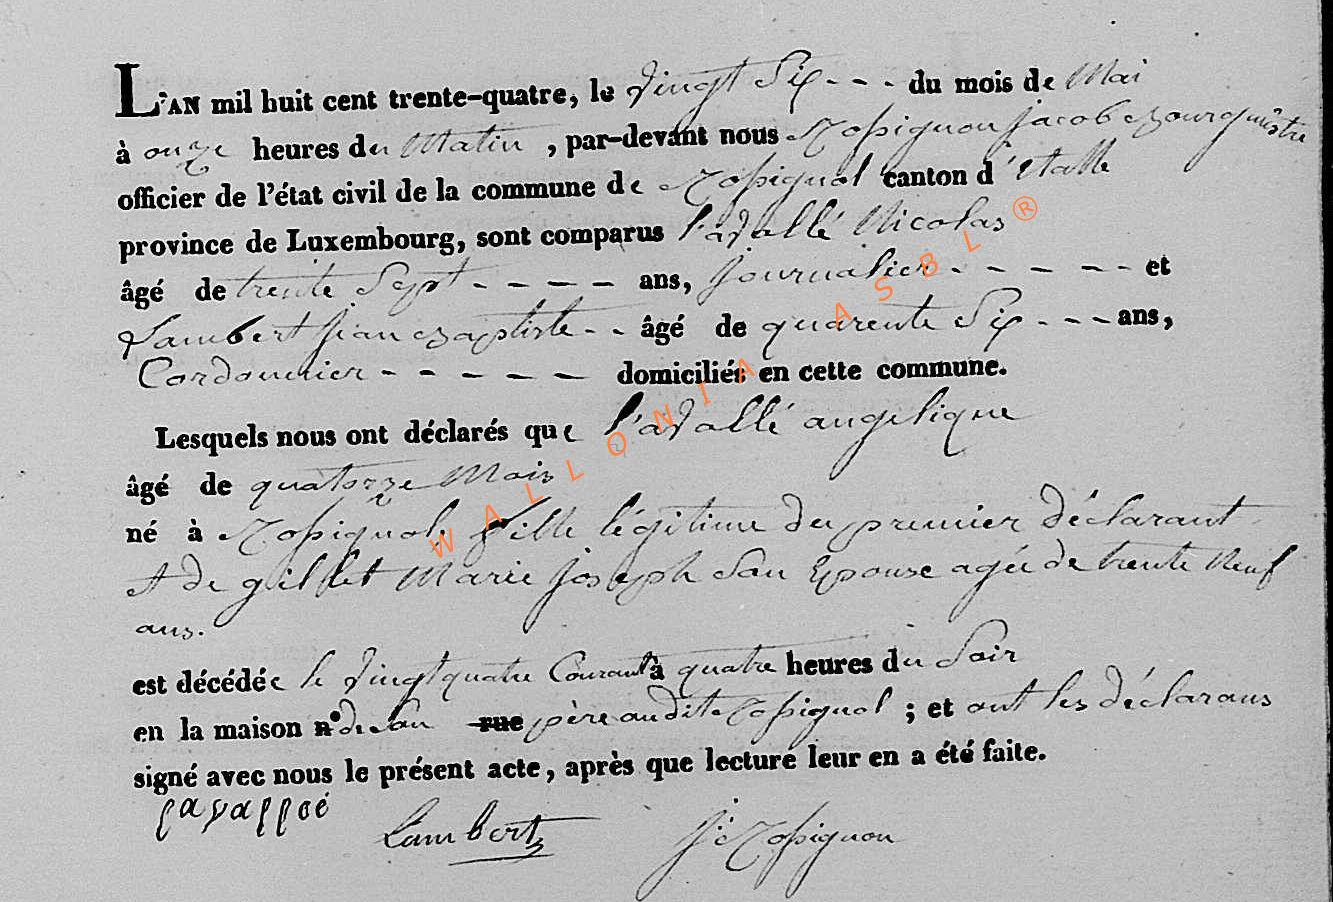 L'AN mil huit cent trente-quatre, le vingt Six - - - du mois de Mai
à onze heures du Matin , par-devant nous Rossignon jacob Bourgmêstre
officier de l'état civil de la commune de Rossignol canton d'Etalle
province de Luxembourg, sont comparus lavallé Nicolas
âgé de trente Sept - - - - ans, journalier - - - - - et
Lambert jean Baptiste - - âgé de quarente Six - - - ans,
Cordonnier - - - - - domiciliés en cette commune.
Lesquels nous ont déclarés que lavallé angelique
âgé de quatorze Mois
né à Rossignol, fille légitime du premier déclarant
et de gillet Marie joseph San Epouse agée de trente Neuf
ans.
est décédée le vingt quatre Courant à quatre heures du Soir
en la maison n° de San rue père audit Rossignol ; et ont les déclarans
signé avec nous le présent acte, après que lecture leur en a été faite.
Lambert J Rossignon
WALLONIA ASBL ®